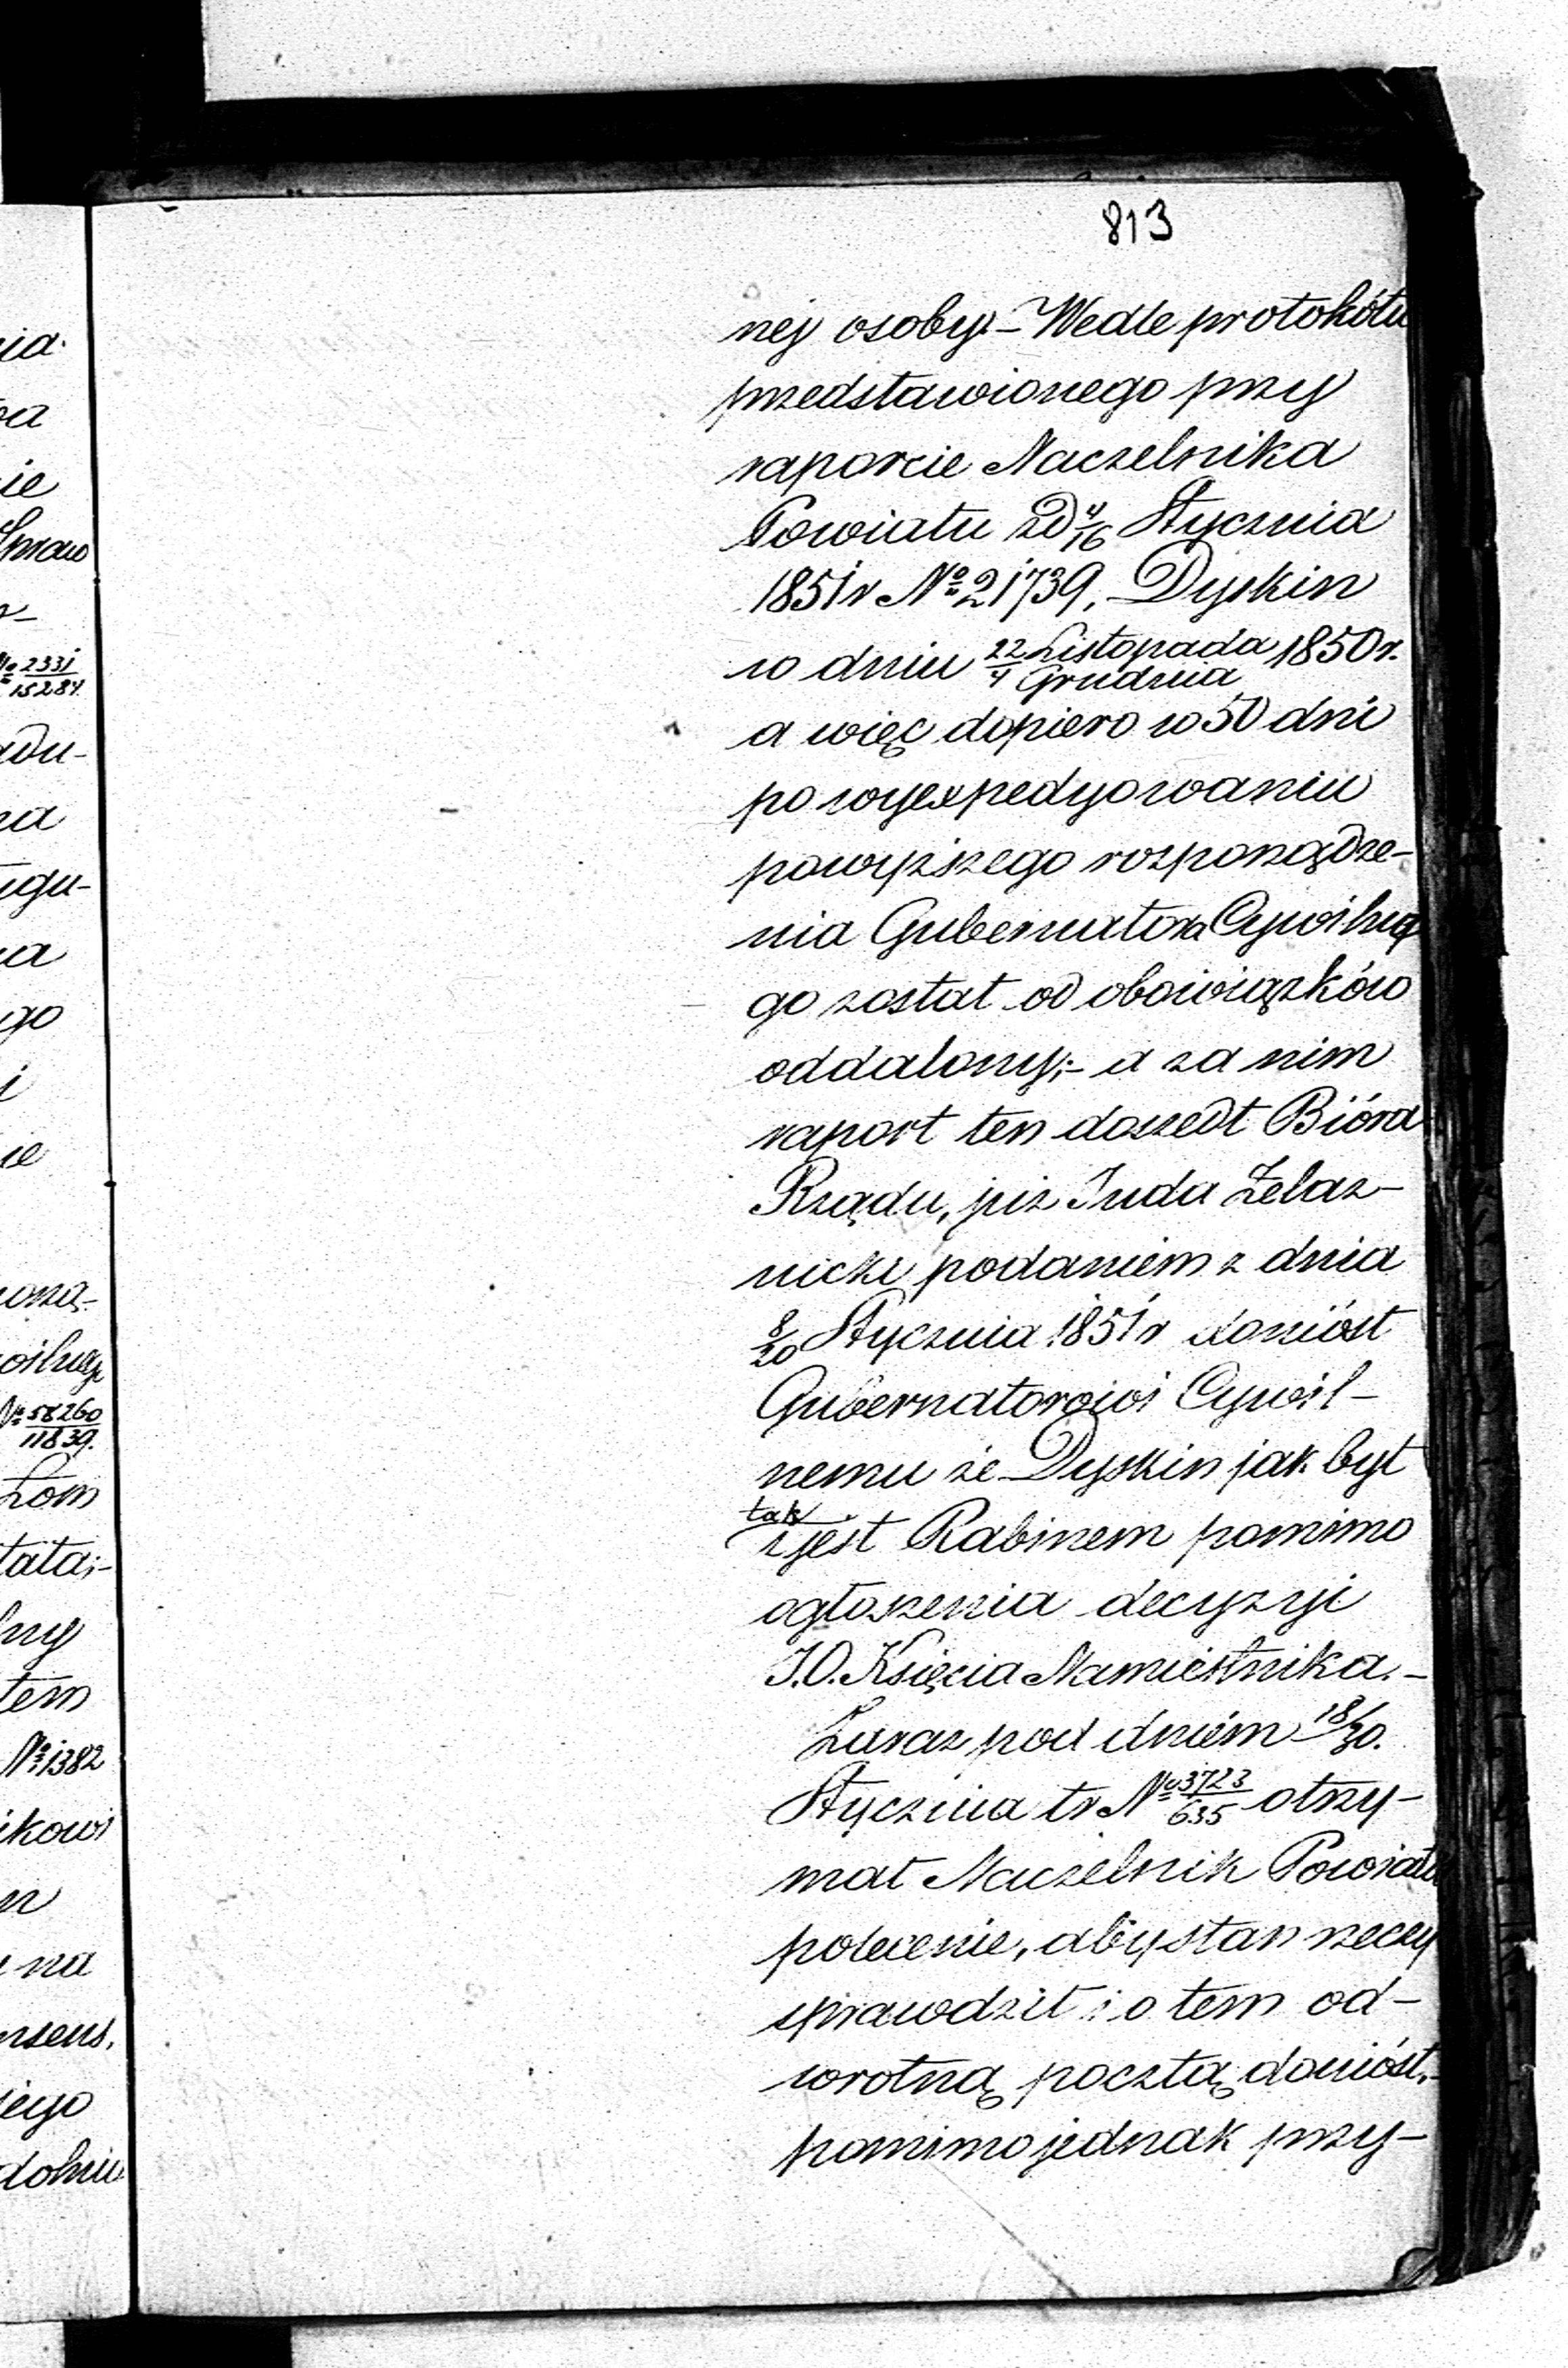 813
nej osoby.– Wedle protokółu
przedstawionego przy
raporcie Naczelnika
Powiatu z d 4/16 Stycznia
1851 r № 21739, Dyskin
w dniu 22 Listopada / 4 Grudnia 1850 r.
a więc dopiero w 50 dni
po wyexpedyowaniu
powyższego rozporządze-
nia Gubernatora Cywilne
go został od obowiązków
oddalony;– a za nim
raport ten doszedł Bióra
Rządu, już Juda Żelaz-
nicki podaniem z dnia
8/20 Stycznia 1851 r doniósł
Gubernatorowi Cywil-
nemu że Dyskin jak był
tak
i jest Rabinem pomimo
ogłoszenia decyzyi
J.O. Księcia Namiestnika.–
Zaraz pod dniem 18/30.
Stycznia tr № 3723/635 otrzy-
mał Naczelnik Powiatu
polecenie, aby stan rzeczy
sprawdził i o tem od-
wrotną pocztą doniósł,
pomimo jednak przy-
ia
ie
Spraw
№ 2331/15284
adu-
na
go
i
ie
№ 58260/11839.
Łom
tem
№ 1382
ikowi
na